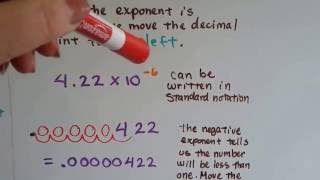 the exponent is
move the decimal
left.
4.22 x 10⁻⁶ can be
written in
Standard notation
.00000422
= .00000422
The negative
exponent tells
us the number
will be less than
one. Move the